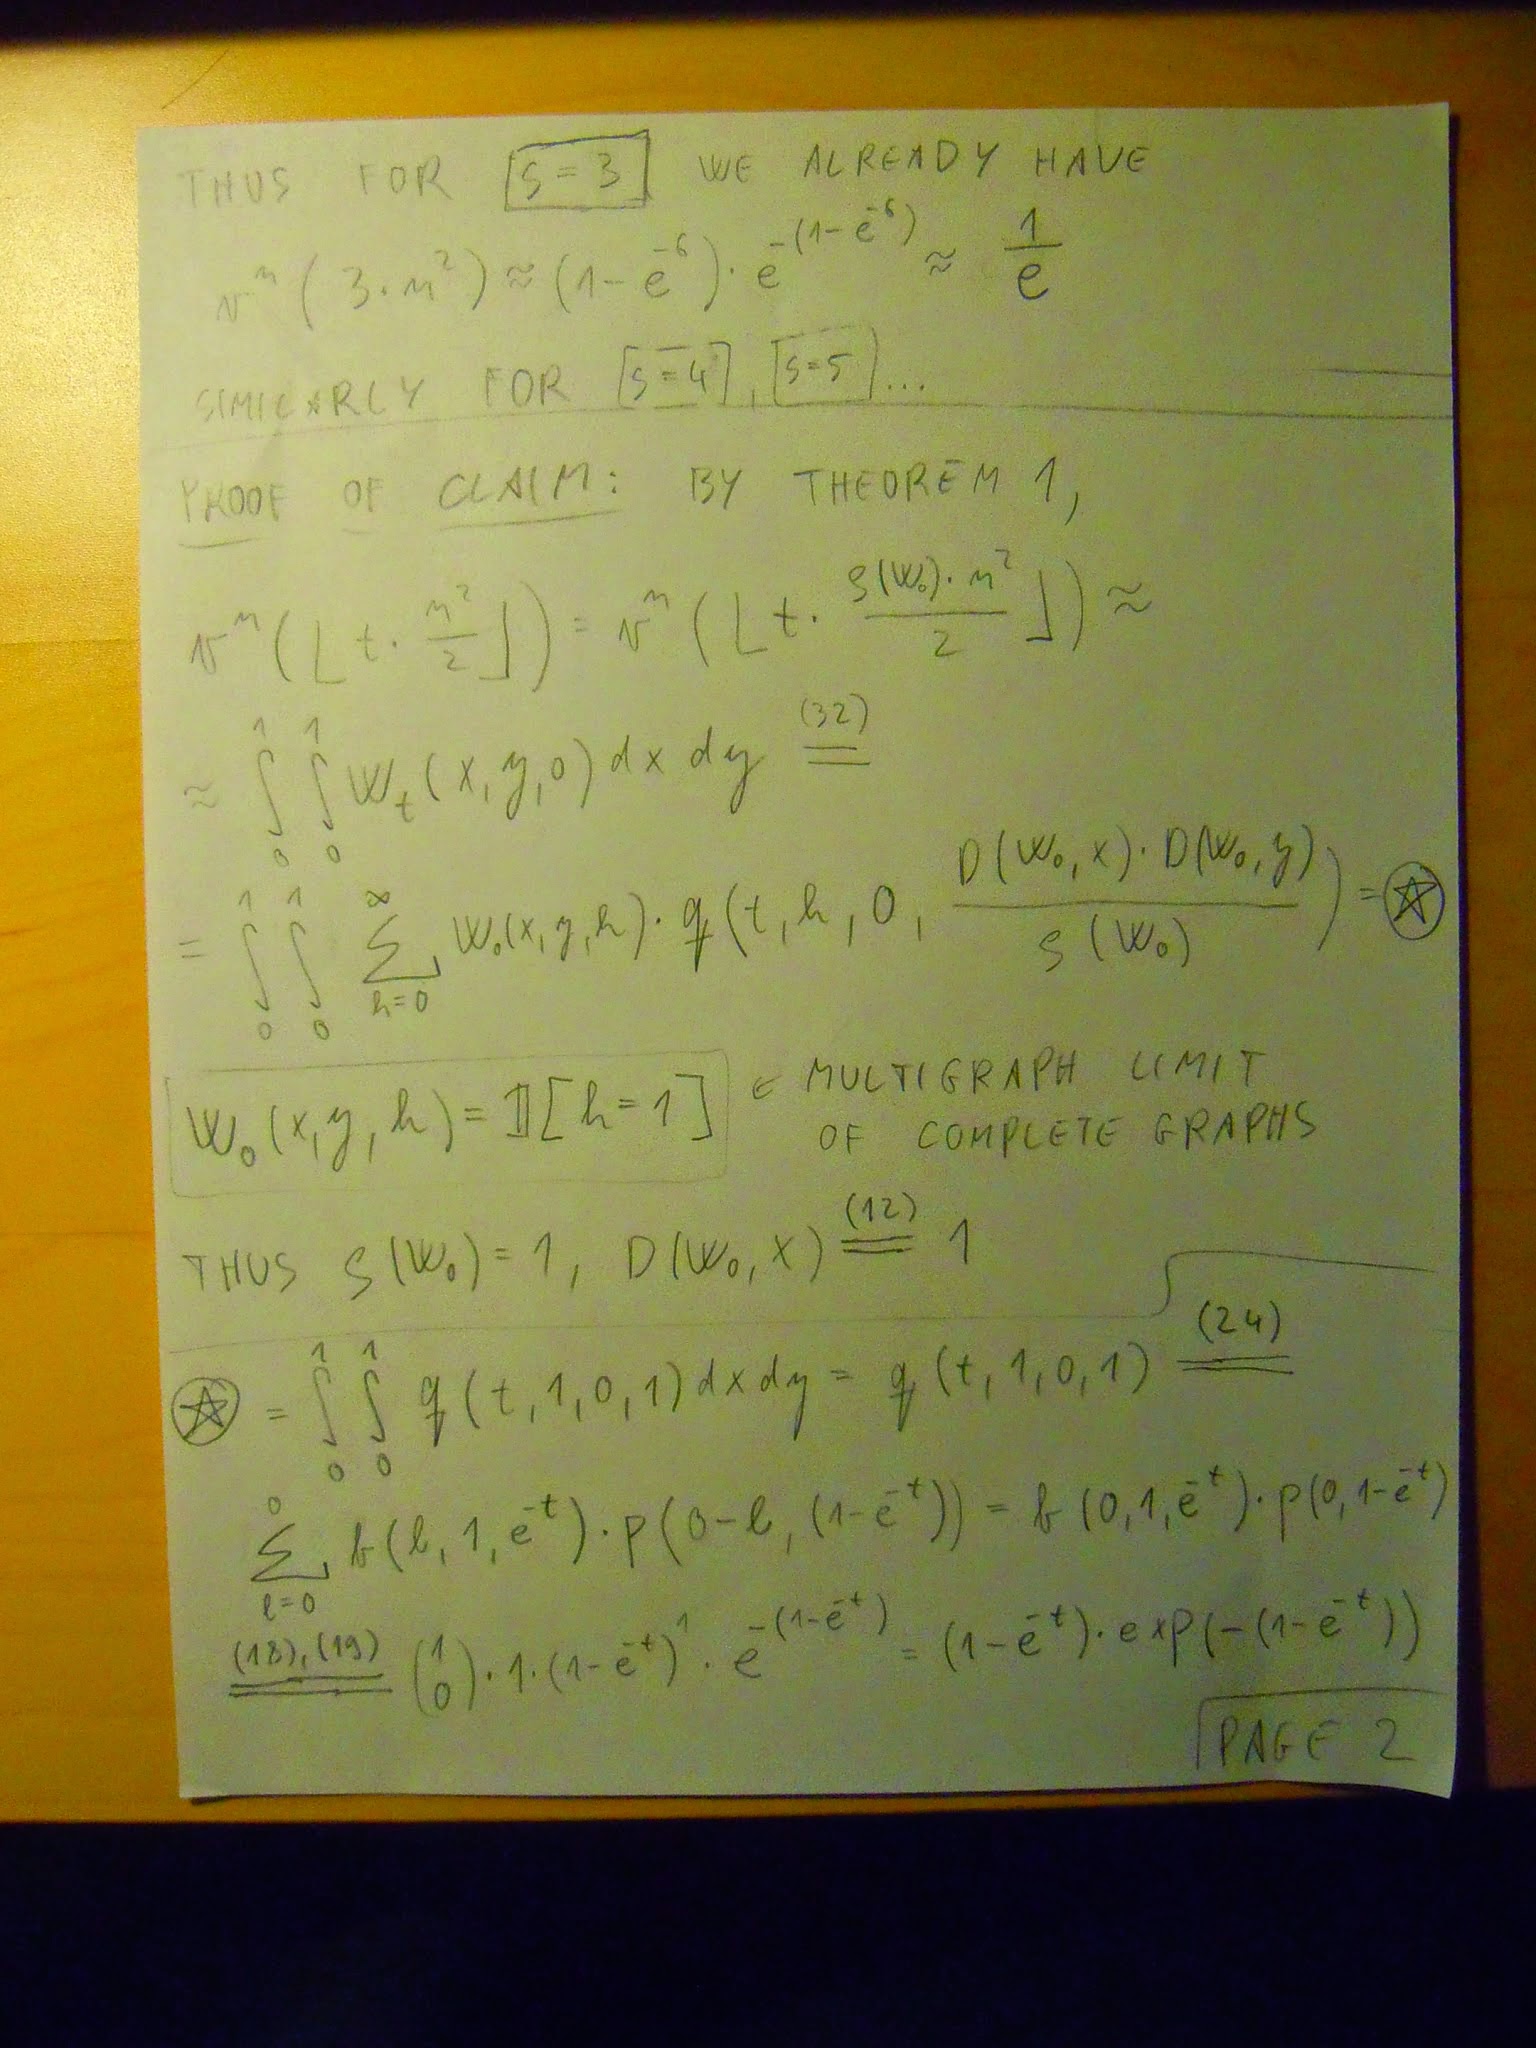 THUS FOR s=3 WE ALREADY HAVE
v^n ( 3·n^2 ) ≈ (1-e^-6)·e^-(1-e^-6) ≈ 1/e
SIMILARLY FOR s=4, s=5...
PROOF OF CLAIM: BY THEOREM 1,
v^n (⌊ t· n^2/2 ⌋) = v^n (⌊ t· ρ(W₀)·n^2/2 ⌋) ≈
≈ ∫_0^1 ∫_0^1 W_t (x,y,0) dx dy =(32)
= ∫_0^1 ∫_0^1 ∑_{h=0}^∞ W₀(x,y,h)·q(t,h,0, D(W₀,x)·D(W₀,y)/ρ(W₀)) = ☆
W₀(x,y,h) = 𝟙[h=1] ← MULTIGRAPH LIMIT
OF COMPLETE GRAPHS
THUS ρ(W₀)=1, D(W₀,x) =(12) 1
☆ = ∫_0^1 ∫_0^1 q(t,1,0,1)dxdy = q(t,1,0,1) =(24)
∑_{l=0}^0 b(l,1,e^-t)·p(0-l,(1-e^-t)) = b(0,1,e^-t)·p(0,1-e^-t)
=(18),(19) (1 0)·1·(1-e^-t)^1·e^-(1-e^-t) = (1-e^-t)·exp(-(1-e^-t))
PAGE 2